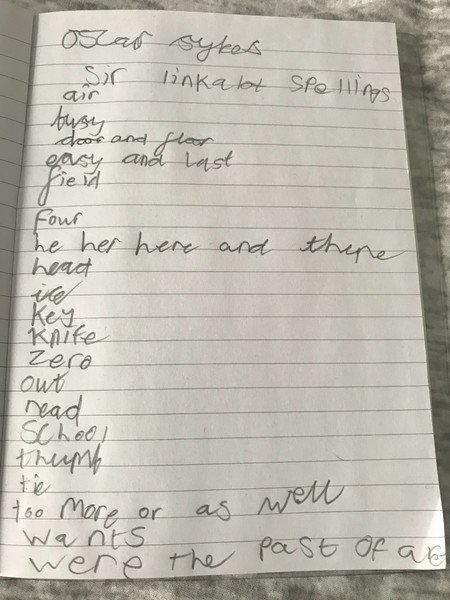 Oscar Sykes
Sir linkalot spellings
air
busy
door and floor
easy and last
field
four
he her here and there
head
ice
key
knife
zero
out
read
school
thumb
tie
too more or as well
wants
were the past of are